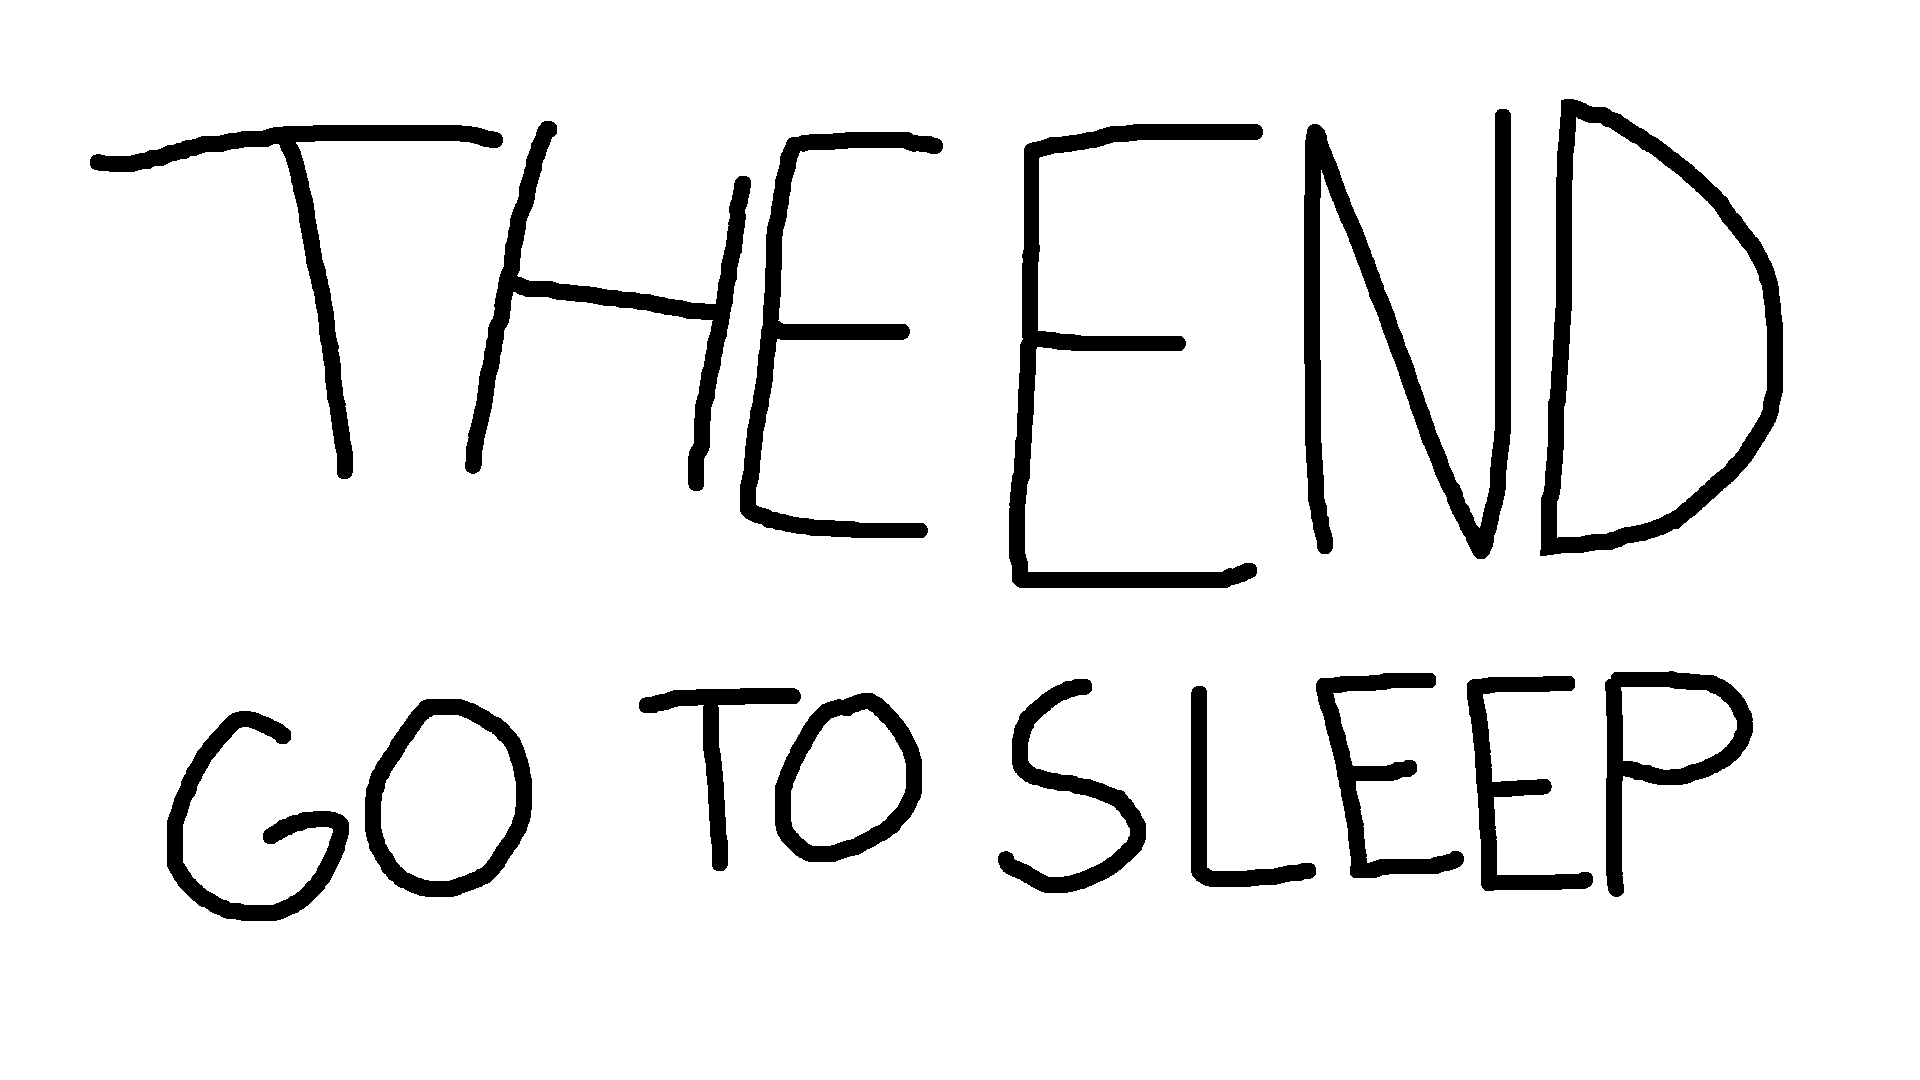 THE END
GO TO SLEEP